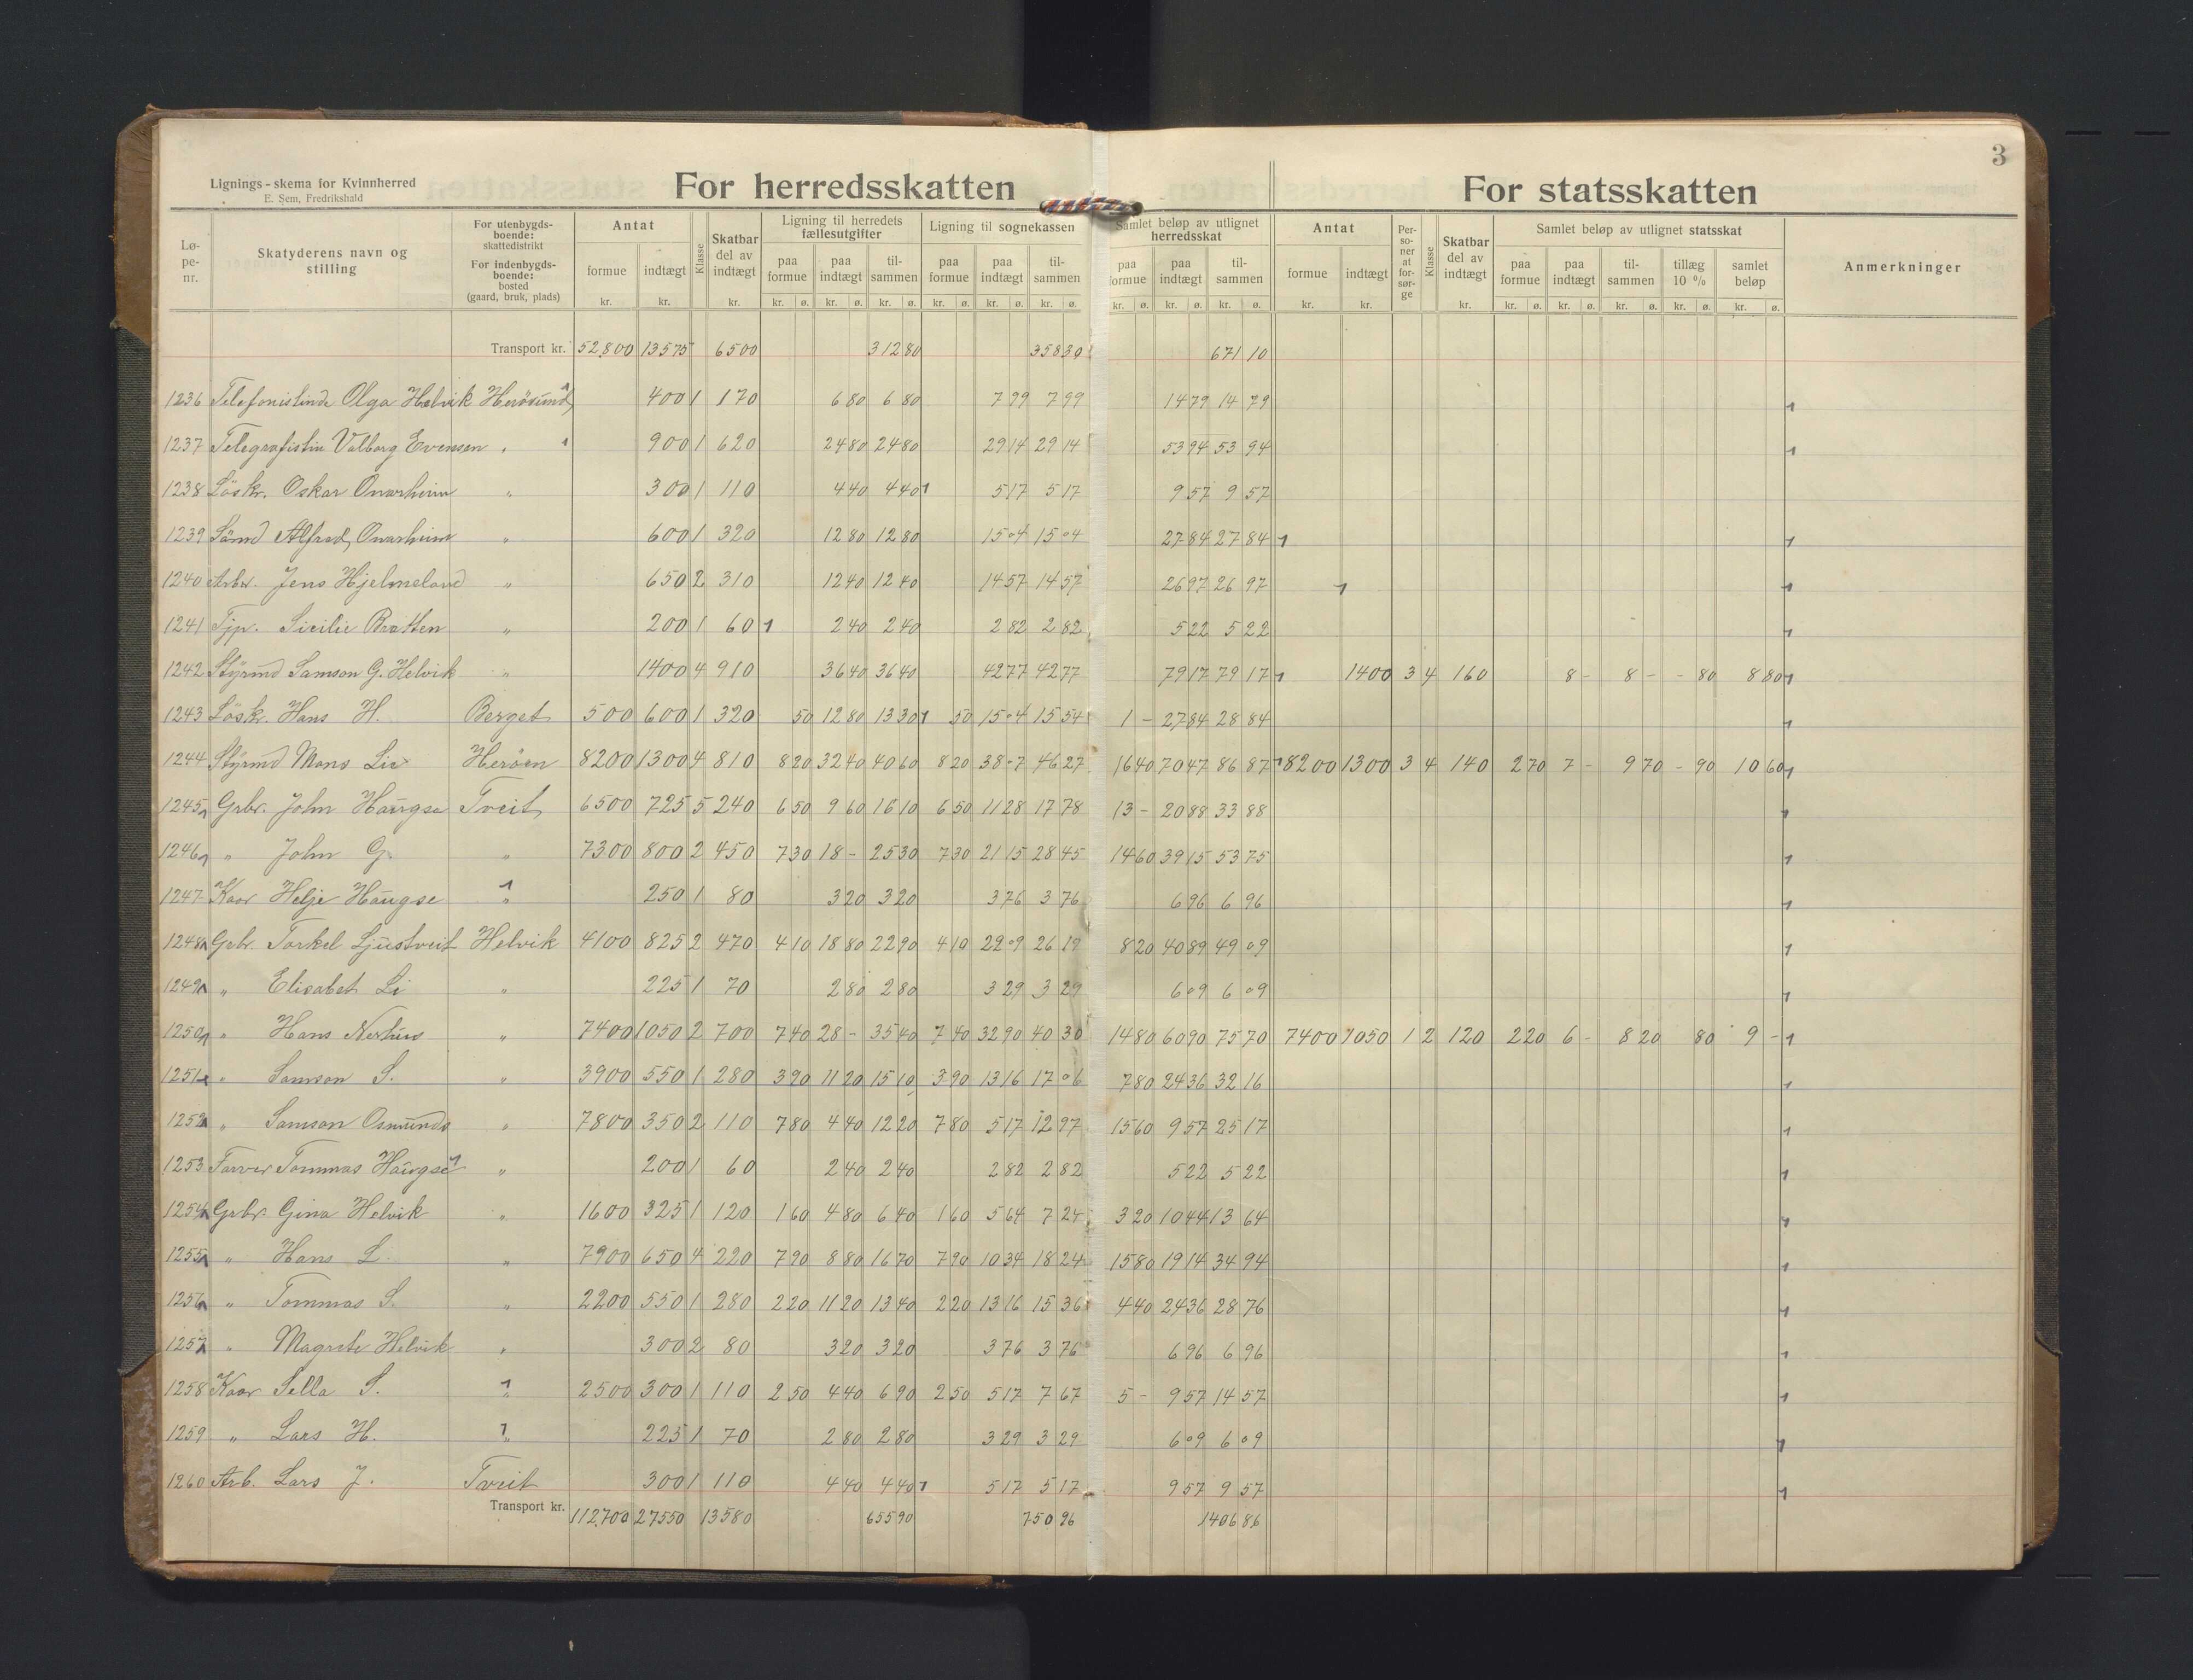 3
Lignings-skema for Kvinnherred
E. Sem, Fredrikshald
For herredsskatten
For statsskatten
Lø-pe-nr.
Skatyderens navn og stilling
For utenbygds-boende: skattedistrikt
For indenbygds-boende: bosted (gaard, bruk, plads)
Antat
formue kr.
indtægt kr.
Klasse
Skatbar del av indtægt kr.
Ligning til herredets fællesutgifter
paa formue kr. ø.
paa indtægt kr. ø.
til-sammen kr. ø.
Ligning til sognekassen
paa formue kr. ø.
paa indtægt kr. ø.
til-sammen kr. ø.
Samlet beløp av utlignet herredsskat
paa formue kr. ø.
paa indtægt kr. ø.
til-sammen kr. ø.
Antat
formue kr.
indtægt kr.
Per-so-ner at for-sør-ge
Klasse
Skatbar del av indtægt kr.
Samlet beløp av utlignet statsskat
paa formue kr. ø.
paa indtægt kr. ø.
til-sammen kr. ø.
tillæg 10 % kr. ø.
samlet beløp kr. ø.
Anmerkninger
Transport kr. 52,800 13575 6500 312 80 358 30 671 10
1236 Telefonistinde Olga Helvik Herösund 400 1 170 6 80 6 80 7 99 7 99 14 79 14 79
1237 Telegrafistin Valborg Evensen " 900 1 620 24 80 24 80 29 14 29 14 53 94 53 94
1238 Löskr. Oskar Onarheim " 300 1 110 4 40 4 40 5 17 5 17 9 57 9 57
1239 Sömd Alfred Onarheim " 600 1 320 12 80 12 80 15 04 15 04 27 84 27 84
1240 Arbr. Jens Hjelmeland " 650 2 310 12 40 12 40 14 57 14 57 26 97 26 97
1241 Tjp. Sicilie Bratten " 200 1 60 2 40 2 40 2 82 2 82 5 22 5 22
1242 Styrmd Samson G. Helvik " 1400 4 910 36 40 36 40 42 77 42 77 79 17 79 17 1400 3 4 160 8 - 8 - - 80 8 80
1243 Löskr. Hans H. Berget 500 600 1 320 50 12 80 13 30 50 15 04 15 54 1 - 27 84 28 84
1244 Styrmd Mons Lie Heröen 8200 1300 4 810 8 20 32 40 40 60 8 20 38 07 46 27 16 40 70 47 86 87 8200 1300 3 4 140 2 70 7 - 9 70 - 90 10 60
1245 Grbr. John Haugse Tveit 6500 725 5 240 6 50 9 60 16 10 6 50 11 28 17 78 13 - 20 88 33 88
1246 " John G. " 7300 800 2 450 7 30 18 - 25 30 7 30 21 15 28 45 14 60 39 15 53 75
1247 Kaar Helje Haugse " 250 1 80 3 20 3 20 3 76 3 76 6 96 6 96
1248 Gbr. Torkel Ljustveit Helvik 4100 825 2 470 4 10 18 80 22 90 4 10 22 09 26 19 8 20 40 89 49 09
1249 " Elisabet Li " 225 1 70 2 80 2 80 3 29 3 29 6 09 6 09
1250 " Hans Nerhus " 7400 1050 2 700 7 40 28 - 35 40 7 40 32 90 40 30 14 80 60 90 75 70 7400 1050 1 2 120 2 20 6 - 8 20 80 9 -
1251 " Samson S. " 3900 550 1 280 3 90 11 20 15 10 3 90 13 16 17 06 7 80 24 36 32 16
1252 " Samson Osmunds " 7800 350 2 110 7 80 4 40 12 20 7 80 5 17 12 97 15 60 9 57 25 17
1253 Farver Tommas Haugse " 200 1 60 2 40 2 40 2 82 2 82 5 22 5 22
1254 Grbr Gina Helvik " 1600 325 1 120 1 60 4 80 6 40 1 60 5 64 7 24 3 20 10 44 13 64
1255 " Hans L. " 7900 650 4 220 7 90 8 80 16 70 7 90 10 34 18 24 15 80 19 14 34 94
1256 " Tommas S. " 2200 550 1 280 2 20 11 20 13 40 2 20 13 16 15 36 4 40 24 36 28 76
1257 " Magrete Helvik " 300 2 80 3 20 3 20 3 76 3 76 6 96 6 96
1258 Kaar Sella S. " 2500 300 1 110 2 50 4 40 6 90 2 50 5 17 7 67 5 - 9 57 14 57
1259 " Lars H. " 225 1 70 2 80 2 80 3 29 3 29 6 09 6 09
1260 Arb. Lars J. Tveit 300 1 110 4 40 4 40 5 17 5 17 9 57 9 57
Transport kr. 112,700 27550 13580 655 90 750 96 1406 86